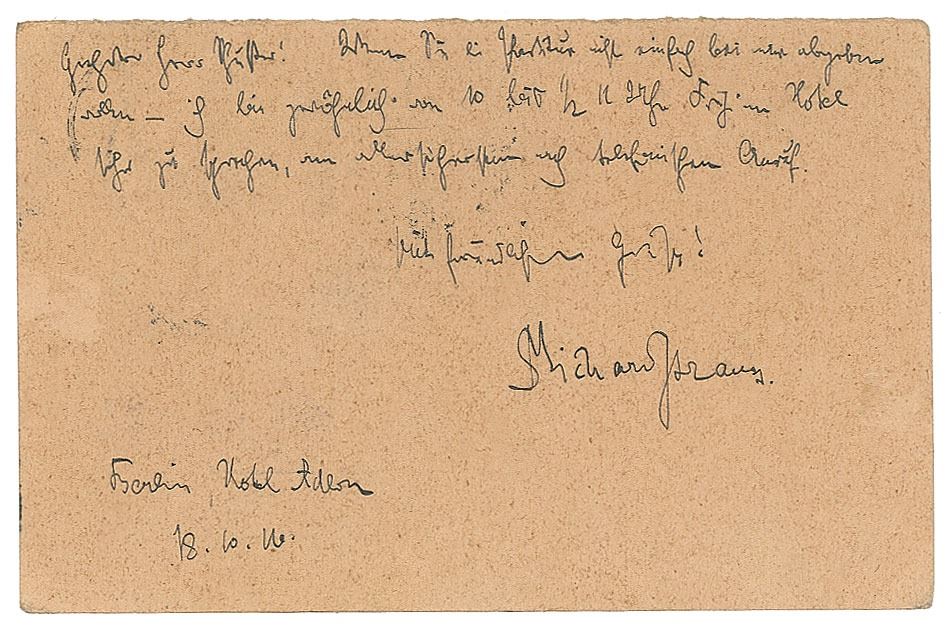 Geehrter Herr! Wenn Sie die Partitur nicht einfach bei mir abgeben
wollen – ich bin gewöhnlich von 10 bis ½ 11 Uhr Früh im Hotel
hier zu sprechen, am allersichersten nach telefonischem Anruf.
Mit freundlichem Gruß!
Richard Strauss.
Berlin, Hotel Adlon
18. 10. 16.